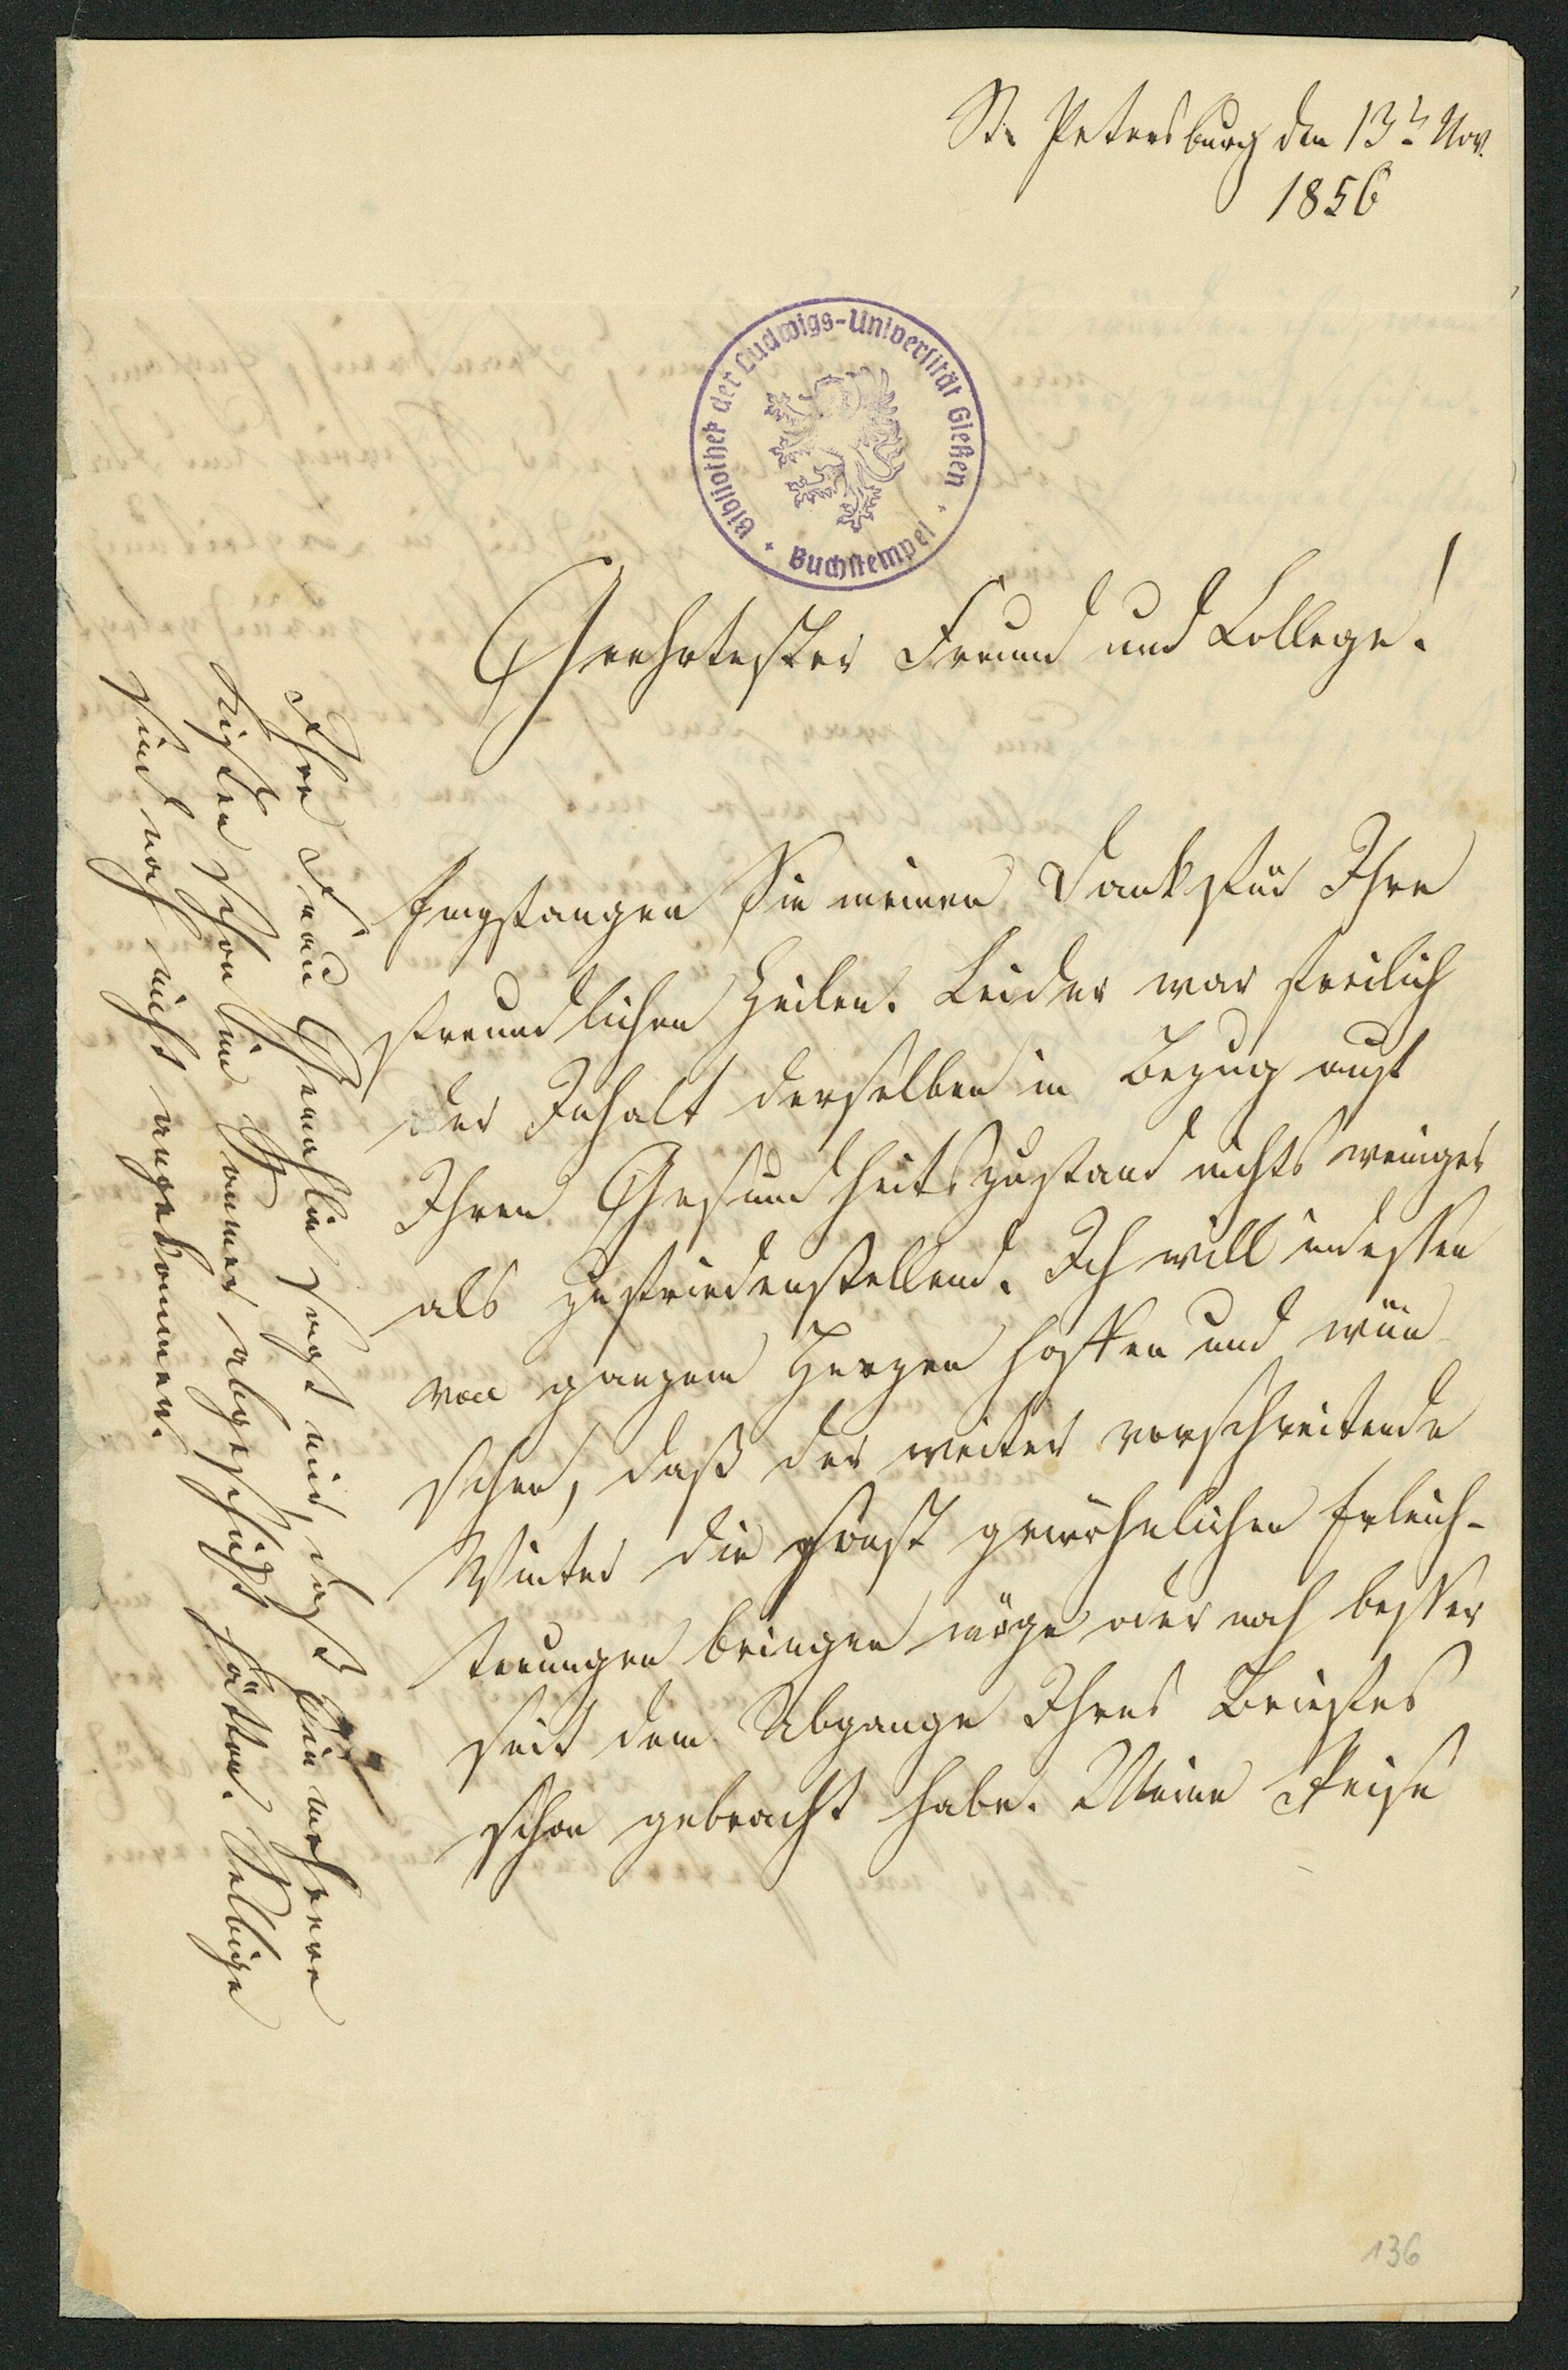 St. Petersburg den 13t Nov.
1856
Bibliothek der Ludwigs-Universität Gießen
Buchstempel
Geehrtester Freund und College!
Empfangen Sie meinen Dank für Ihre
freundlichen Zeilen. Leider war freilich
der Inhalt derselben in Bezug auf
Ihren Gesundheitszustand nichts weniger
als zufriedenstellend. Ich will indessen
von ganzem Herzen hoffen und wün
schen, daß der weiter vorschreitende
Winter die sonst gewöhnlichen Erleich-
terungen bringen möge oder noch besser
seit dem Abgange Ihres Briefes
schon gebracht habe. Meine Reise
Ihre Frau Gemahlin sagt mir, daß Sie mehrere
Kisten schon im Sommer abgeschickt hätten. Selbige
sind noch nicht angekommen.
136